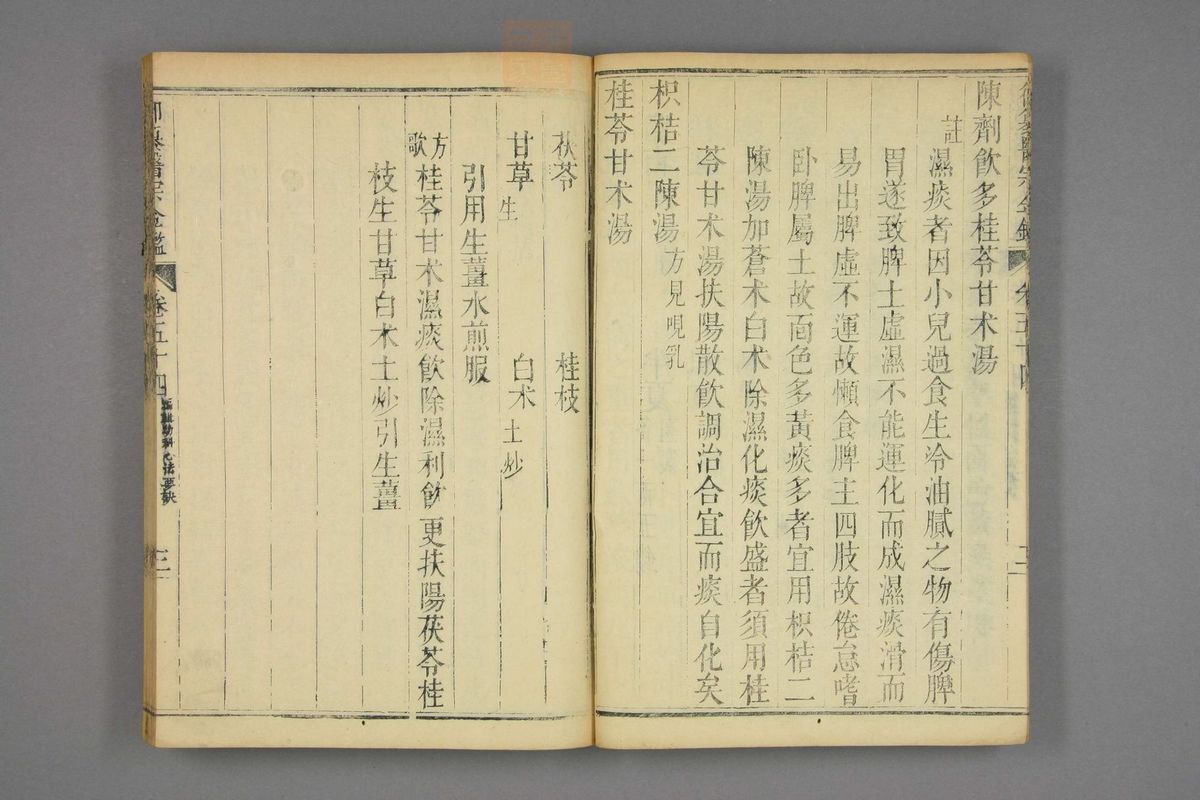 陳劑飲多桂苓甘术湯
註濕痰者因小兒過食生冷油膩之物有傷脾
胃遂致脾土虛濕不能運化而成濕痰滑而
易出脾虛不運故懶食脾主四肢故倦怠嗜
卧脾屬土故面色多黃痰多者宜用枳桔二
陳湯加蒼术白术除濕化痰飲盛者須用桂
苓甘术湯扶陽散飲調治合宜而痰自化矣
枳桔二陳湯方見哯乳
桂苓甘术湯
茯苓 桂枝
甘草生 白术土炒
引用生薑水煎服
方歌桂苓甘术濕痰飲除濕利飲更扶陽茯苓桂
枝生甘草白术土炒引生薑
醫宗金鑑 卷五十四 幼科心法要訣 三